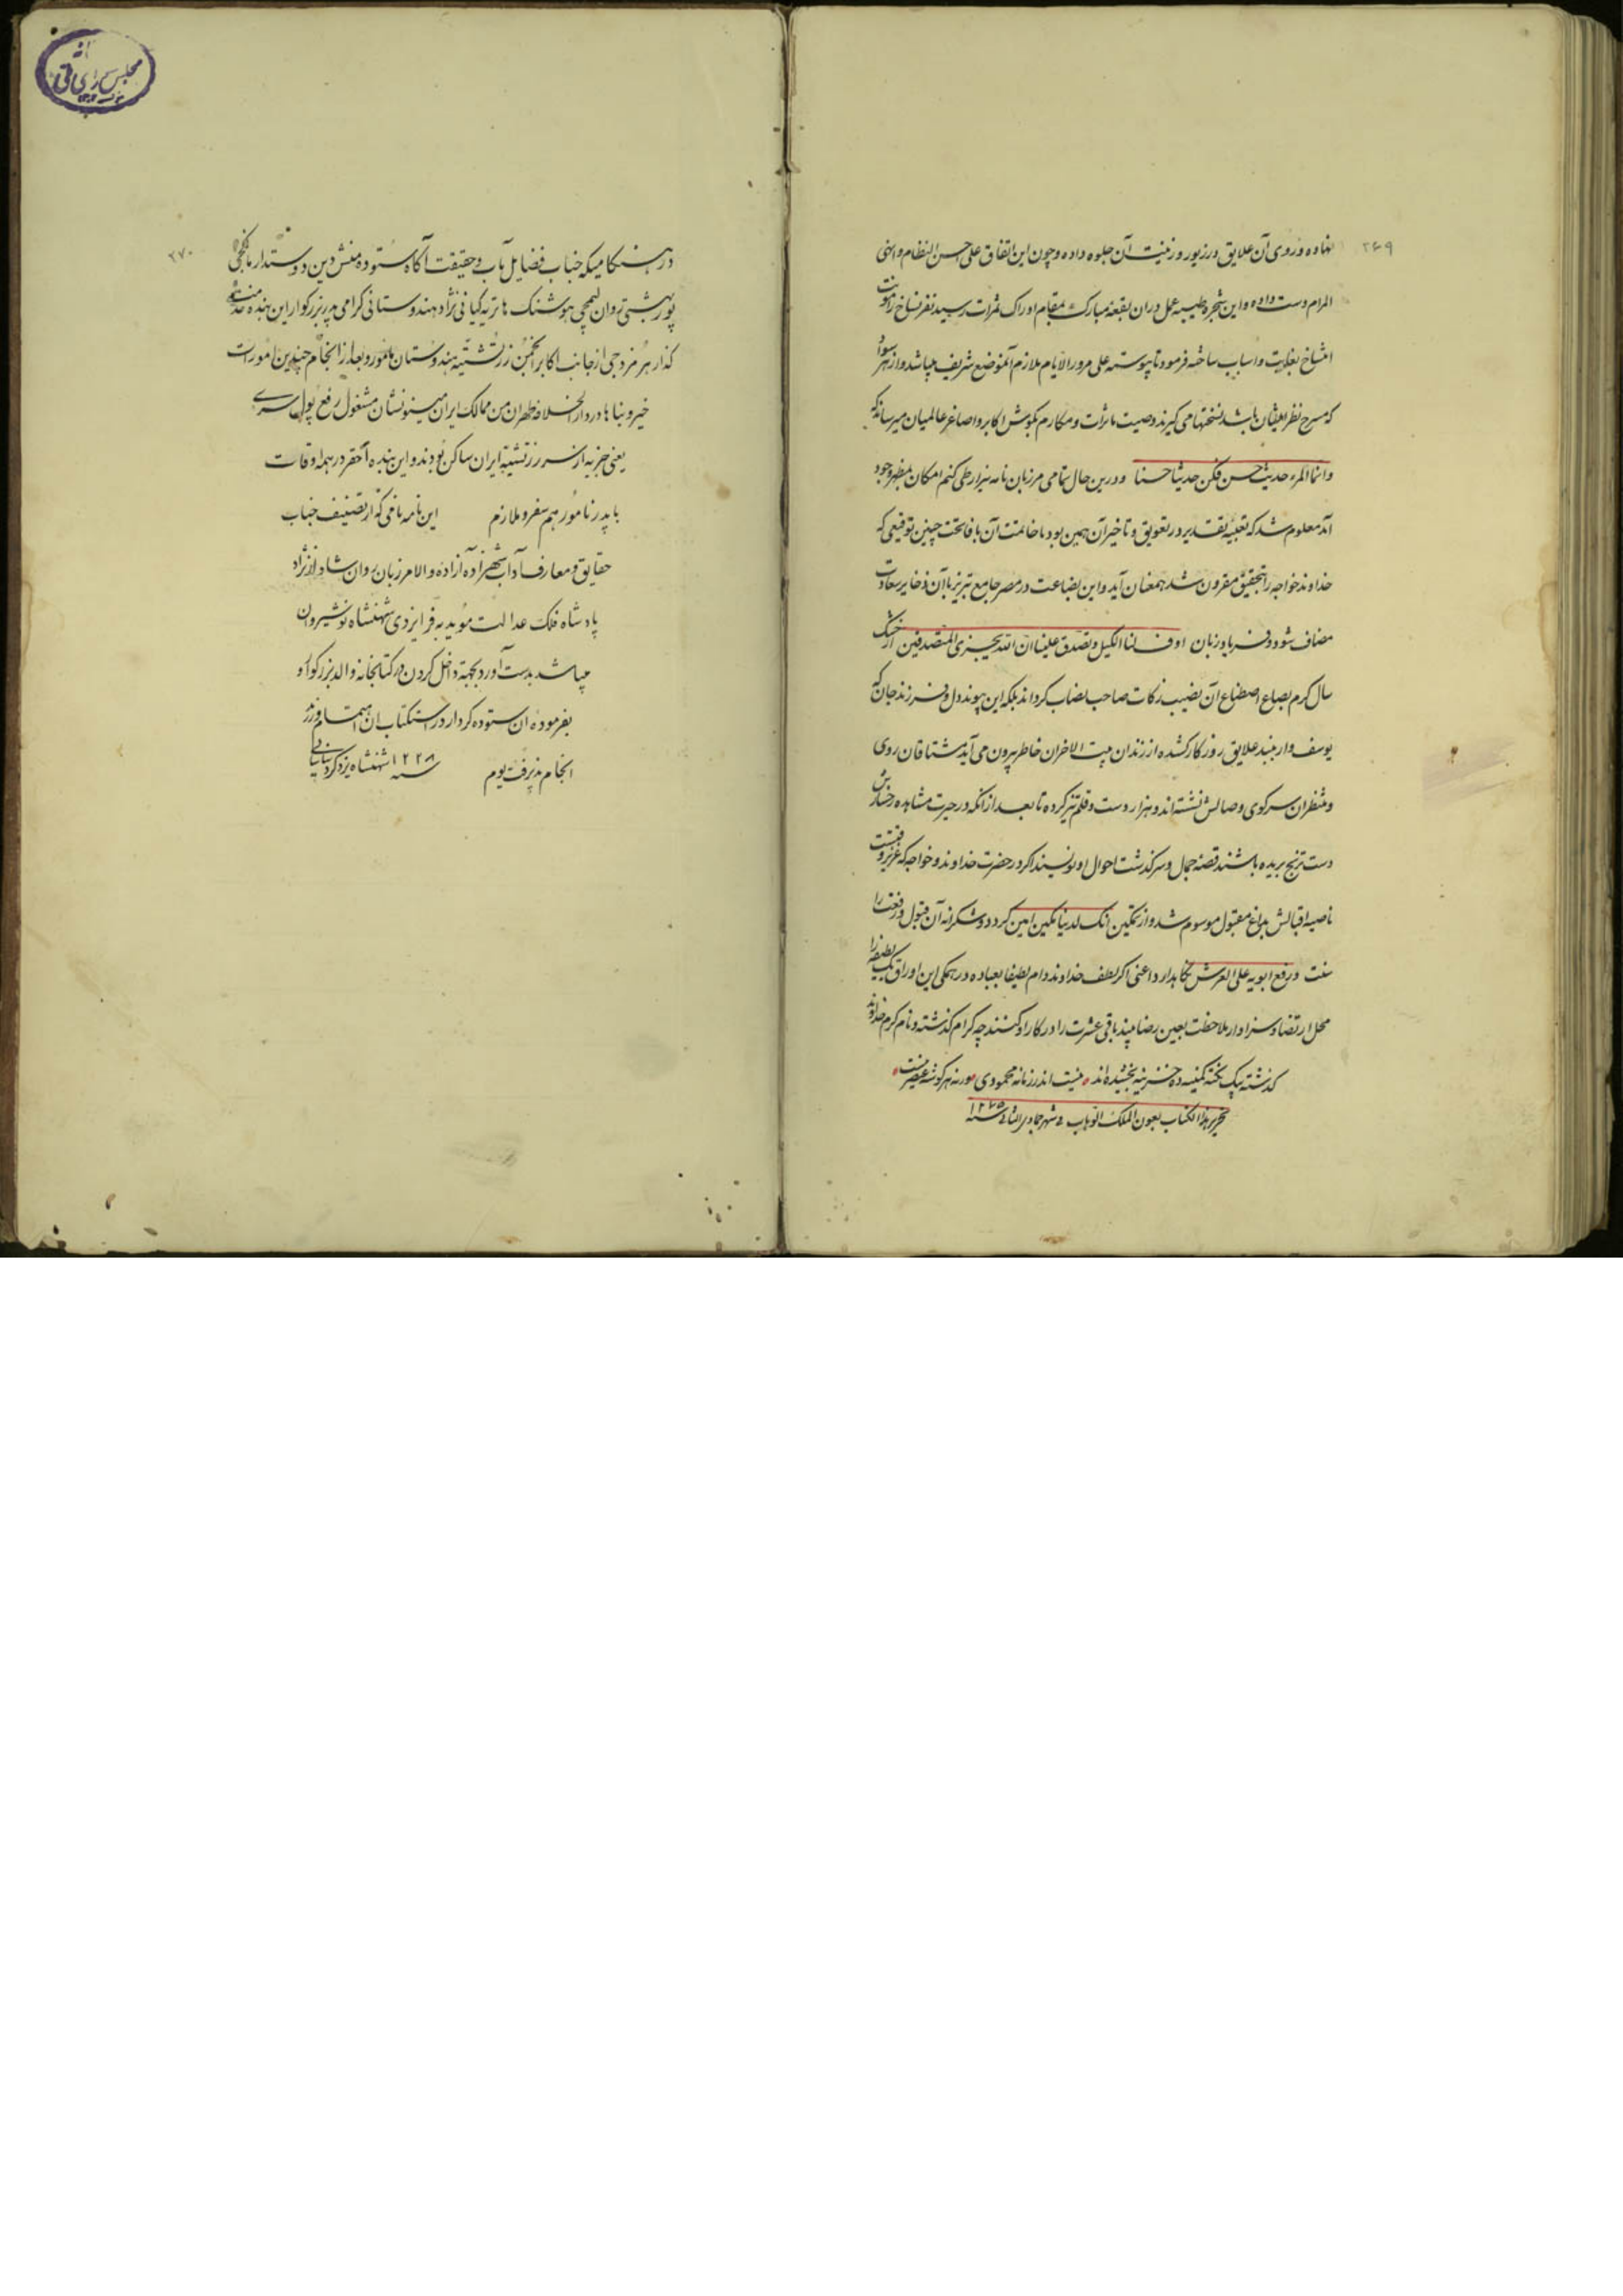 ۲۶۹
نهاده و روی آن علایق در زیور و زینت آن جلوه داده و چون این اتفاق علی حسن النظام و ابهی
المرام دست داده و این شجره طیبه عمل در ان بقعه مبارک بمقام ادراک ثمرات رسید نفر نساخ را مونت
انتساخ بغایت و اسباب ساخته فرمود تا پیوسته علی مرور الایام ملازم آنموضع شریف میباشد و از هر سواد
که مسرح نظر ایشان باشد نسختها می گیرند وصیت ماثرات و مکارم بگوش اکابر و اصاغر عالمیان میرسانند که
و انما المرء حدیث حسن فکن حدیثا حسنا و درین حال تمامی مرزبان نامه نیز از طی کتم امکان بمظهر وجود
آمد معلوم شد که تعبیه تقدیر در تعویق و تاخیر آن همین بود تا خاتمت آن با فاتحت چنین توفیقی که
خداوند خواجه را بتحقیق مقرون شد همعنان آید و این بضاعت در مصر جامع تبریز با آن ذخایر سعادت
مضاف شود و فریاد زبان اوف لنا الکیل و تصدق علینا ان الله یجزی المتصدقین از خشک
سال کرم بصاع اصطناع آن نصیب زکات صاحب نصاب گرداند بلکه این پیوند دل و فرزند جان که
یوسف وار ببند علایق روزگار کشیده از زندان بیت الاحزان خاطر بیرون می آید مشتاقان روی
و منتظران سر کوی وصالش نشسته اند و هزار دست و قلم تیز کرده تا بعد از انکه در حیرت مشاهده رخسارش
دست ترنج بریده باشند قصه جمال و سرگذشت احوال او نویسند اگر در حضرت خداوند و خواجه که عزیز وقتست
ناصیه اقبالش بداغ مقبول موسوم شد و از تمکین انک لدینا مکین امین گردد و شکرانه آن قبول و رفعت را
سنت و رفع ابویه علی العرش نگاهدارد اعنی اگر لطف خداوند دام لطیفا بعباده در همگی این اوراق یک لطیفه را
محل ارتضا و سزاوار ملاحظت بعین رضا بیند باقی عشرت را در کار او کنند چه کرام گذشته و نام کرم خداوند
گذشته بیک نکته کمینه ده خزینه بخشیده اند نیست اندر زمانه محمودی ورنه هر گوشه عنصریست
تحریر هذا الکتاب بعون الملک الوهاب فی شهر جمادی الثانی سنه ۱۲۷۵
۲۷۰
در هنگامیکه جناب فضایل مآب و حقیقت آگاه ستوده منش دین دوستدار مانکجی
پور بهشتی روان لیمجی هوشنگ هاتریه کیانی نژاد هندوستانی گرامی پدر بزرگوار این بنده خدمت
گذار هرمزدجی از جانب اکابر انجمن زرتشتیه هندوستان مامور و بعد از انجام چندین امورات
خیر و بناها در دار الخلافه طهران من ممالک ایران مینونشان مشغول رفع پول سری
یعنی جزیه از سر زرتشتیه ایران ساکن بودند و این بنده احقر در همه اوقات
با پدر نامور هم سفر و ملازم این نامه نامی که از تصنیف جناب
حقایق و معارف آداب شهزاده آزاده والا مرزبان روان شاد از نژاد
پادشاه فلک عدالت موید به فر ایزدی شهنشاه نوشیروان
میباشد بدست آورد بجهته داخل کردن در کتابخانه والد بزرگوار و
بفرموده ان ستوده کردار در استکتاب ان اهتمام ورزید
انجام پذیرفت یوم سنه ۱۲۲۸ شهنشاه یزدگرد ساسانی
مجلس شورای ملی